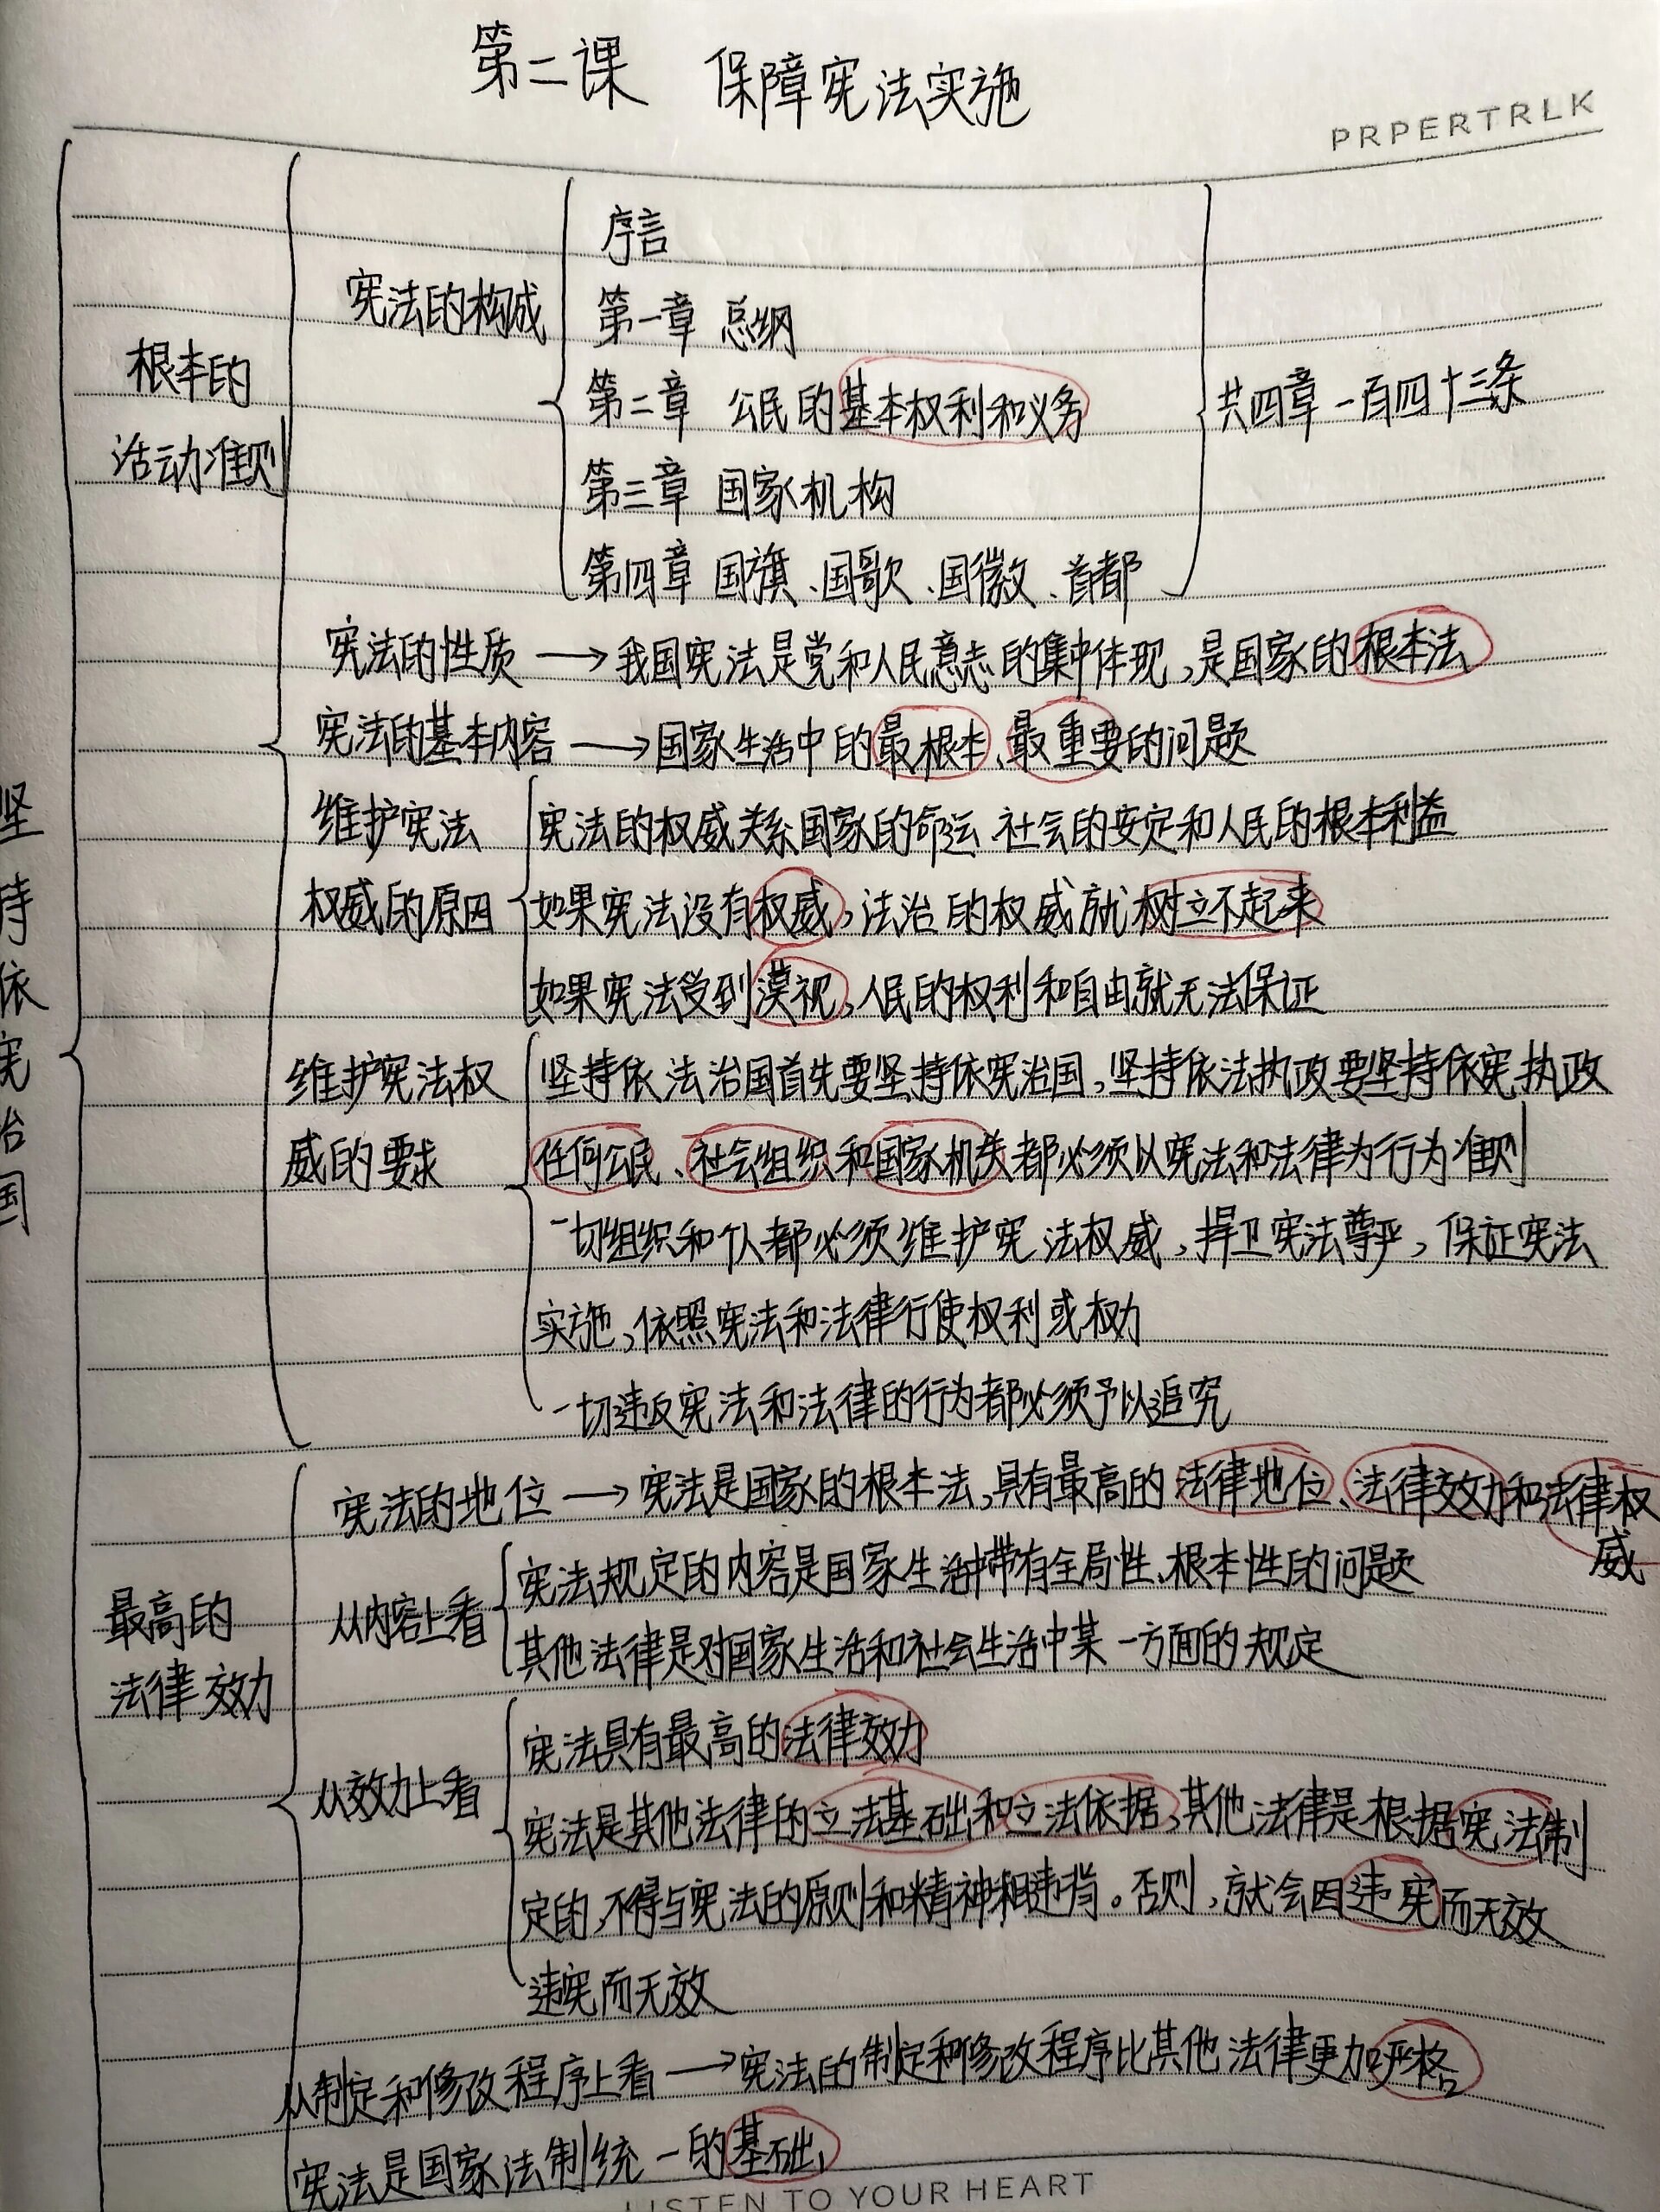 第二课 保障宪法实施
PRPERTRLK
坚持依宪治国
根本的
活动准则
宪法的构成
序言
第一章 总纲
第二章 公民的基本权利和义务
第三章 国家机构
第四章 国旗、国歌、国徽、首都
共四章一百四十三条
宪法的性质→我国宪法是党和人民意志的集中体现,是国家的根本法
宪法的基本内容→国家生活中的最根本、最重要的问题
维护宪法
权威的原因
宪法的权威关系国家的命运、社会的安定和人民的根本利益
如果宪法没有权威,法治的权威就树立不起来
如果宪法受到漠视,人民的权利和自由就无法保证
维护宪法权
威的要求
坚持依法治国首先要坚持依宪治国,坚持依法执政要坚持依宪执政
任何公民、社会组织和国家机关都必须以宪法和法律为行为准则
一切组织和个人都必须维护宪法权威,捍卫宪法尊严,保证宪法
实施,依照宪法和法律行使权利或权力
一切违反宪法和法律的行为都必须予以追究
最高的
法律效力
宪法的地位→宪法是国家的根本法,具有最高的法律地位、法律效力和法律权
威
从内容上看
宪法规定的内容是国家生活中带有全局性、根本性的问题
其他法律是对国家生活和社会生活中某一方面的规定
从效力上看
宪法具有最高的法律效力
宪法是其他法律的立法基础和立法依据,其他法律是根据宪法制
定的,不得与宪法的原则和精神相违背。否则,就会因违宪而无效
违宪而无效
从制定和修改程序上看→宪法的制定和修改程序比其他法律更加严格
宪法是国家法制统一的基础
LISTEN TO YOUR HEART